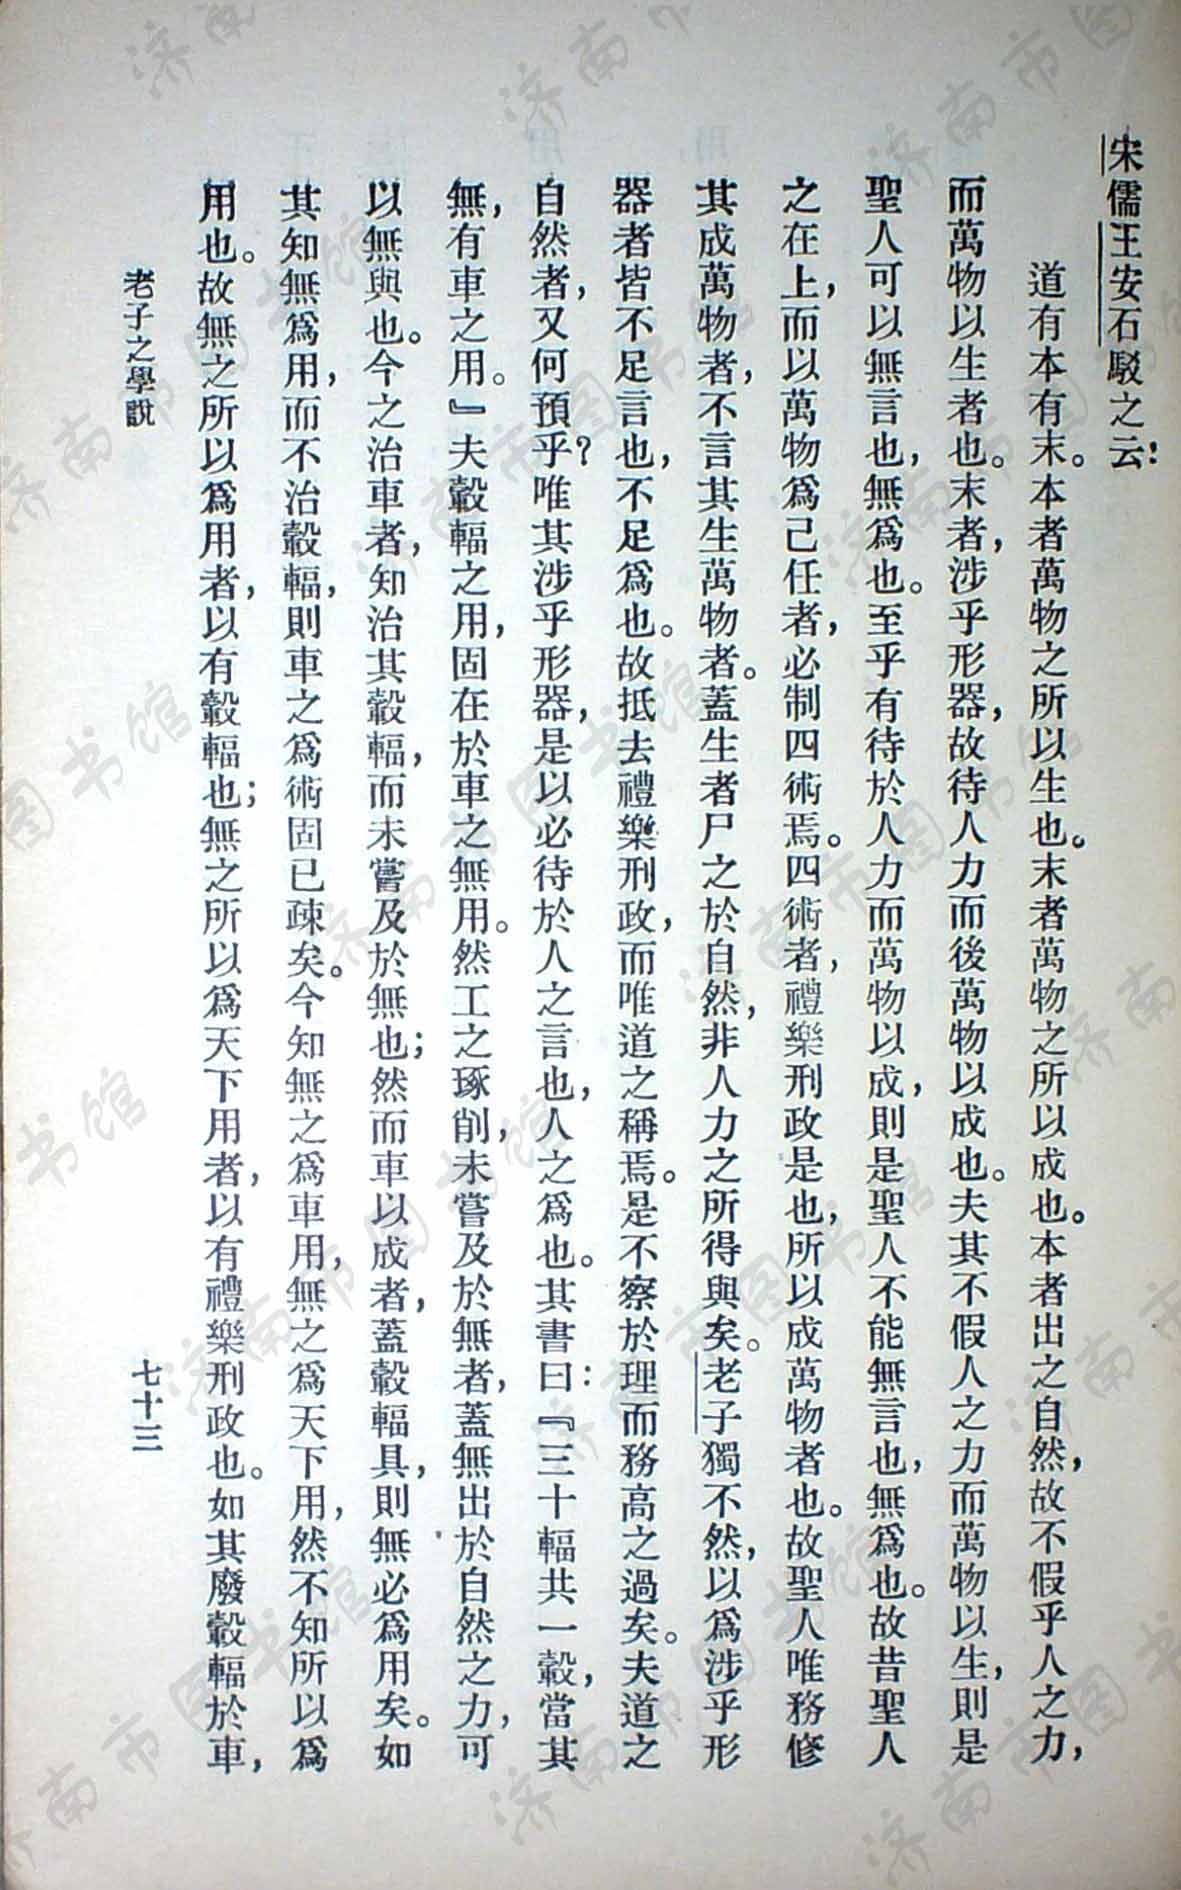 宋儒王安石駁之云：
道有本有末。本者萬物之所以生也。末者萬物之所以成也。本者出之自然，故不假乎人之力，
而萬物以生者也。末者，涉乎形器，故待人力而後萬物以成也。夫其不假人之力而萬物以生，則是
聖人可以無言也，無爲也。至乎有待於人力而萬物以成，則是聖人不能無言也，無爲也。故昔聖人
之在上，而以萬物爲己任者，必制四術焉。四術者，禮樂刑政是也，所以成萬物者也。故聖人唯務修
其成萬物者，不言其生萬物者。蓋生者尸之於自然，非人力之所得與矣。老子獨不然，以爲涉乎形
器者皆不足言也，不足爲也。故抵去禮樂刑政，而唯道之稱焉。是不察於理而務高之過矣。夫道之
自然者，又何預乎？唯其涉乎形器，是以必待於人之言也，人之爲也。其書曰：『三十輻共一轂，當其
無，有車之用。』夫轂輻之用，固在於車之無用。然工之琢削，未嘗及於無者，蓋無出於自然之力，可
以無與也。今之治車者，知治其轂輻，而未嘗及於無也；然而車以成者，蓋轂輻具，則無必爲用矣。如
其知無爲用，而不治轂輻，則車之爲術固已疎矣。今知無之爲車用，無之爲天下用，然不知所以爲
用也。故無之所以爲用者，以有轂輻也；無之所以爲天下用者，以有禮樂刑政也。如其廢轂輻於車，
老子之學說
七十三
济南市图书馆